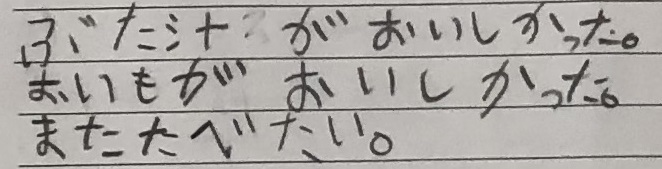 ぶた汁がおいしかった。
おいもがおいしかった。
またたべたい。